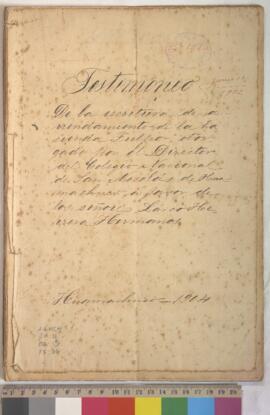 Testimonio
De la escritura de a
rrendamiento de la ha
cienda Tulpo, otor
gado por el Director
del Colegio Nacional
de San Nicolás de Hua
machuco, á favor de
los señores Larco He
rrera Hermanos
Huamachuco 1904